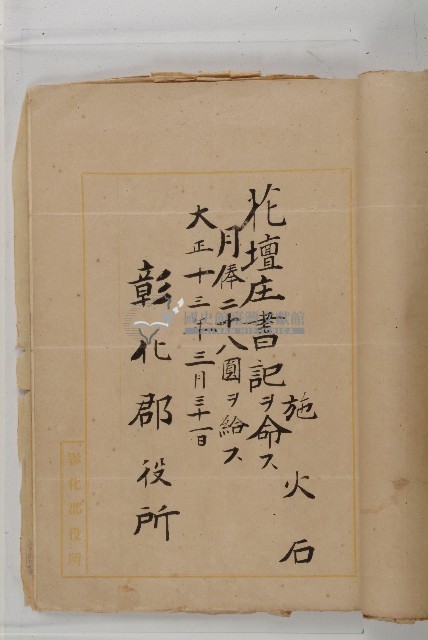 施火石
花壇庄書記ヲ命ス
月俸二十八圓ヲ給ス
大正十三年三月三十一日
彰化郡役所
彰化郡役所
國史館臺灣文獻館